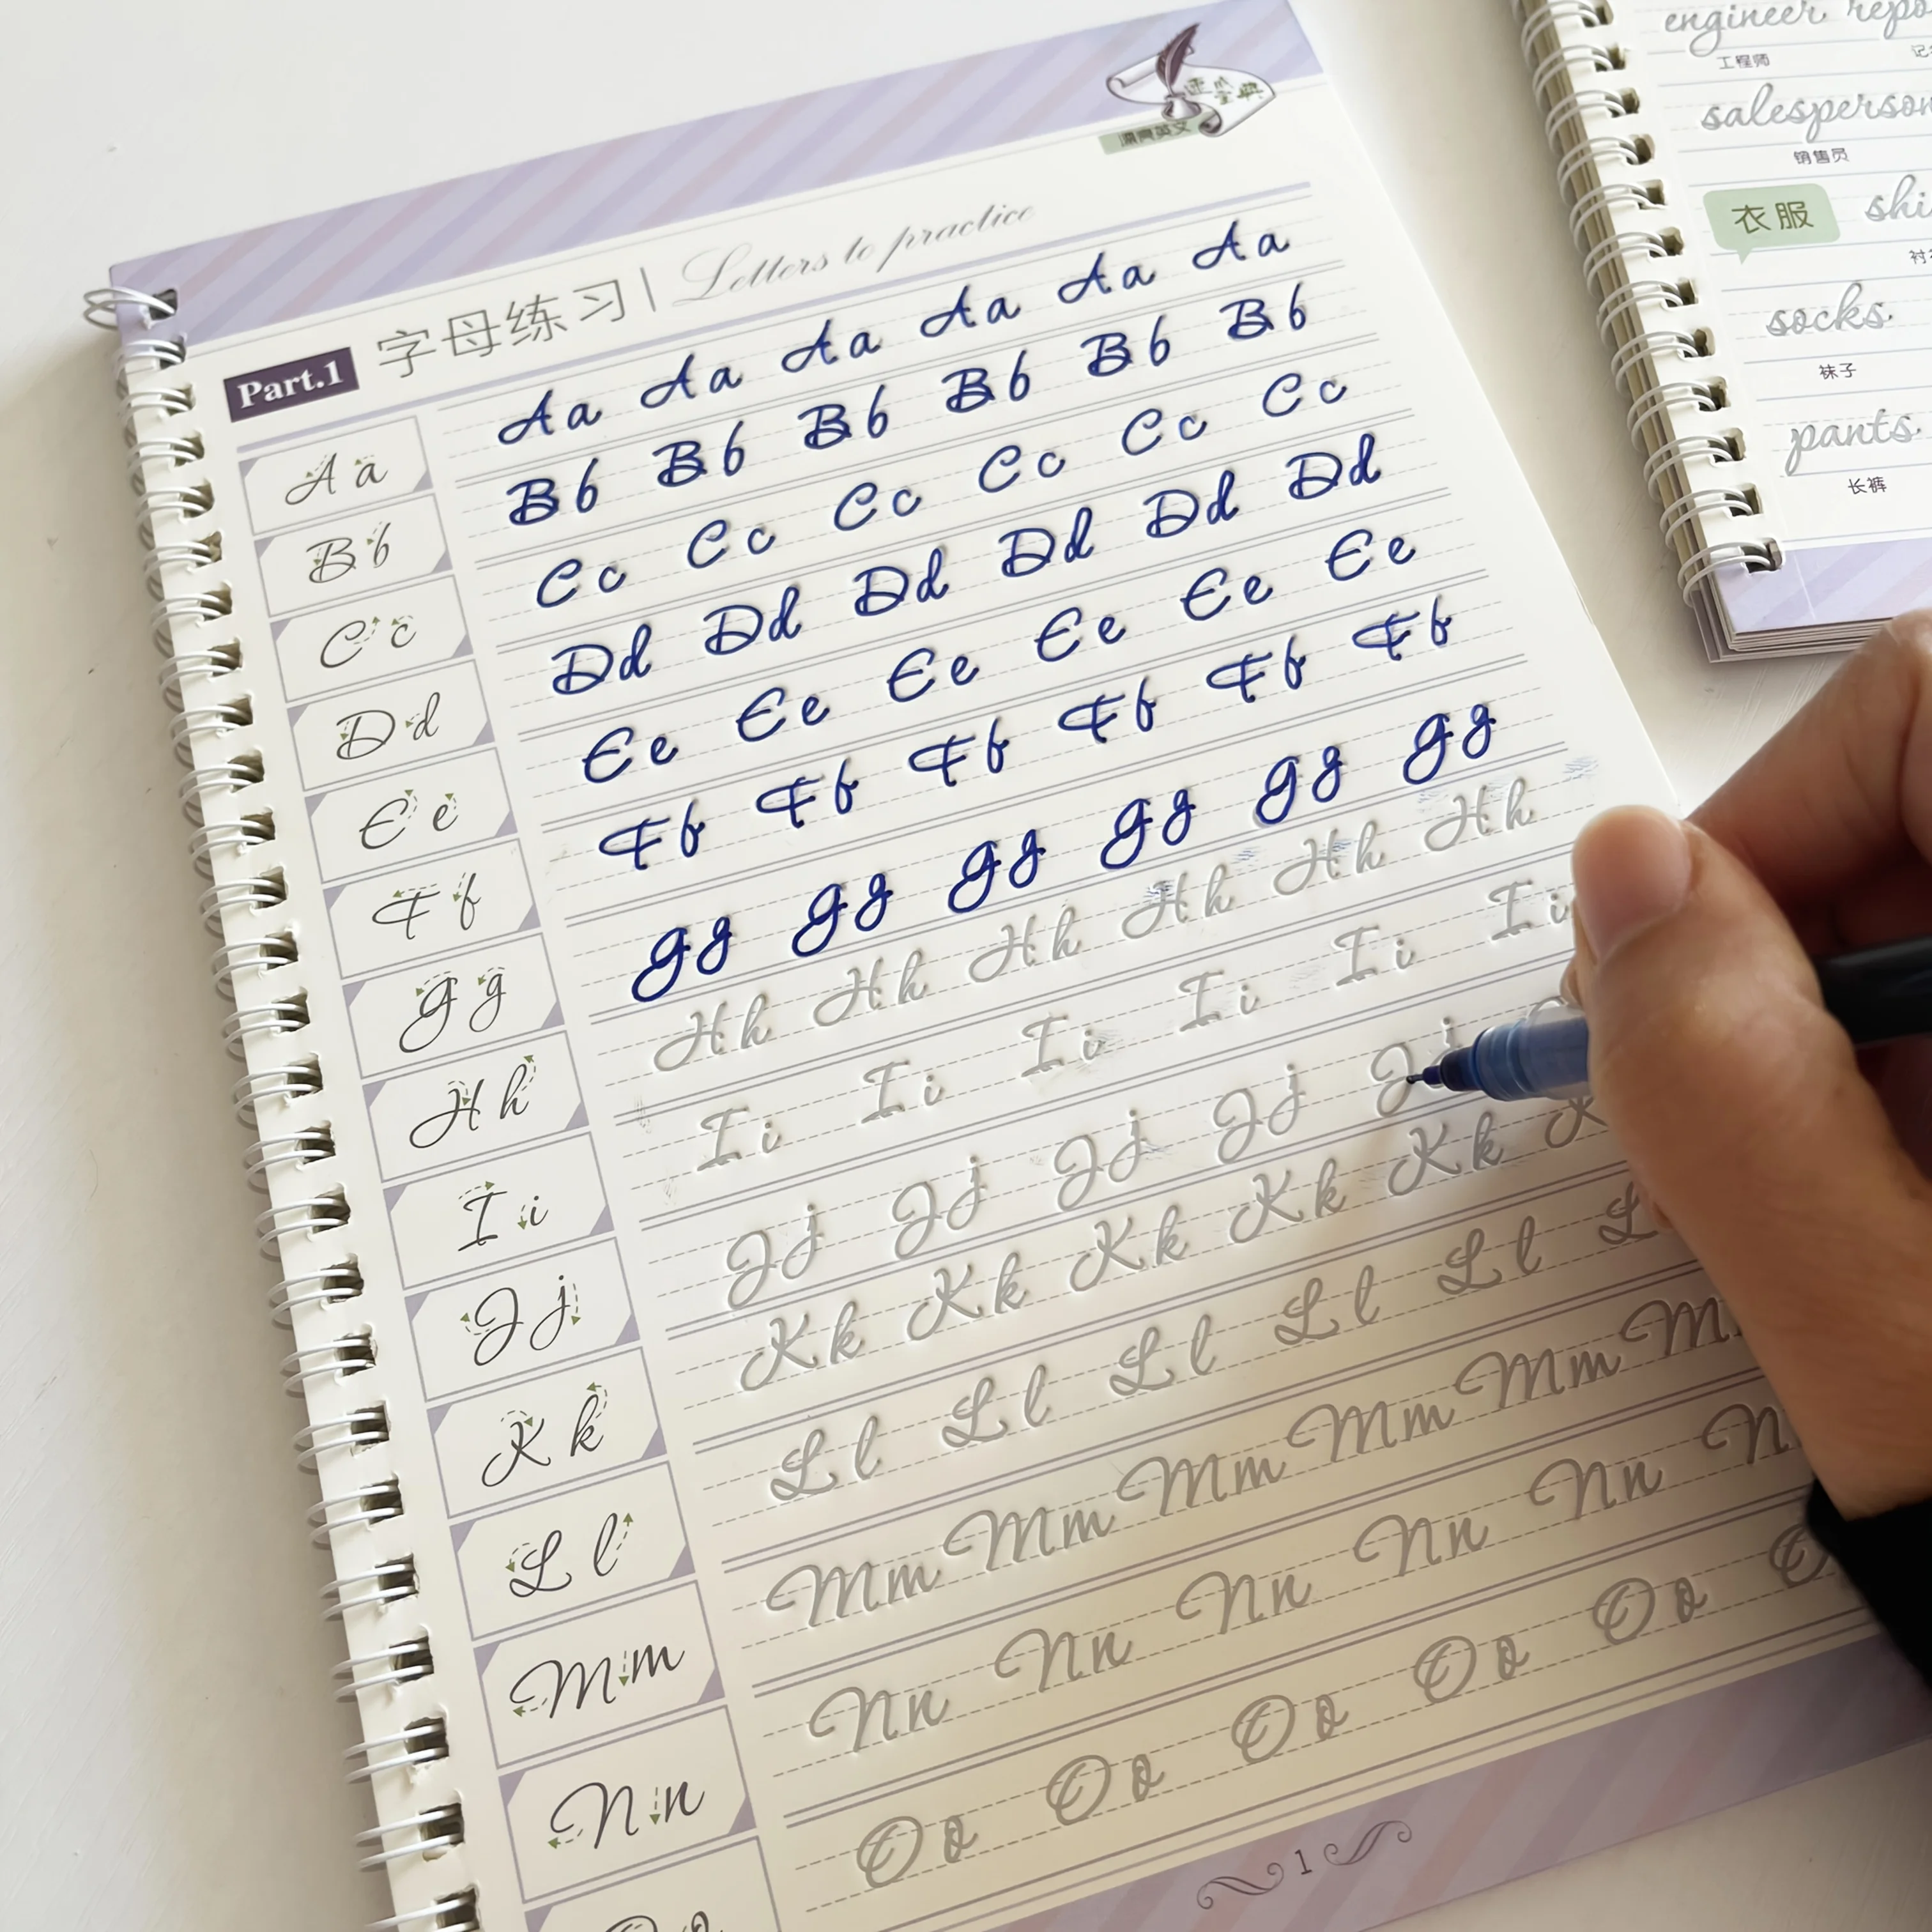 Part.1 字母练习 | Letters to practice
A a Aa Aa Aa Aa Aa Aa
B b Bb Bb Bb Bb Bb Bb
C c Cc Cc Cc Cc Cc Cc
D d Dd Dd Dd Dd Dd Dd
E e Ee Ee Ee Ee Ee Ee
F f Ff Ff Ff Ff Ff Ff
G g Gg Gg Gg Gg Gg Gg
H h Hh Hh Hh Hh Hh Hh
I i Ii Ii Ii Ii Ii Ii
J j Jj Jj Jj Jj Jj
K k Kk Kk Kk Kk Kk K
L l Ll Ll Ll Ll Ll L
M m Mm Mm Mm Mm Mm M
N n Nn Nn Nn Nn Nn N
Oo Oo Oo Oo Oo O
1
engineer
工程师
salesperson
销售员
衣服
socks
袜子
pants
长裤